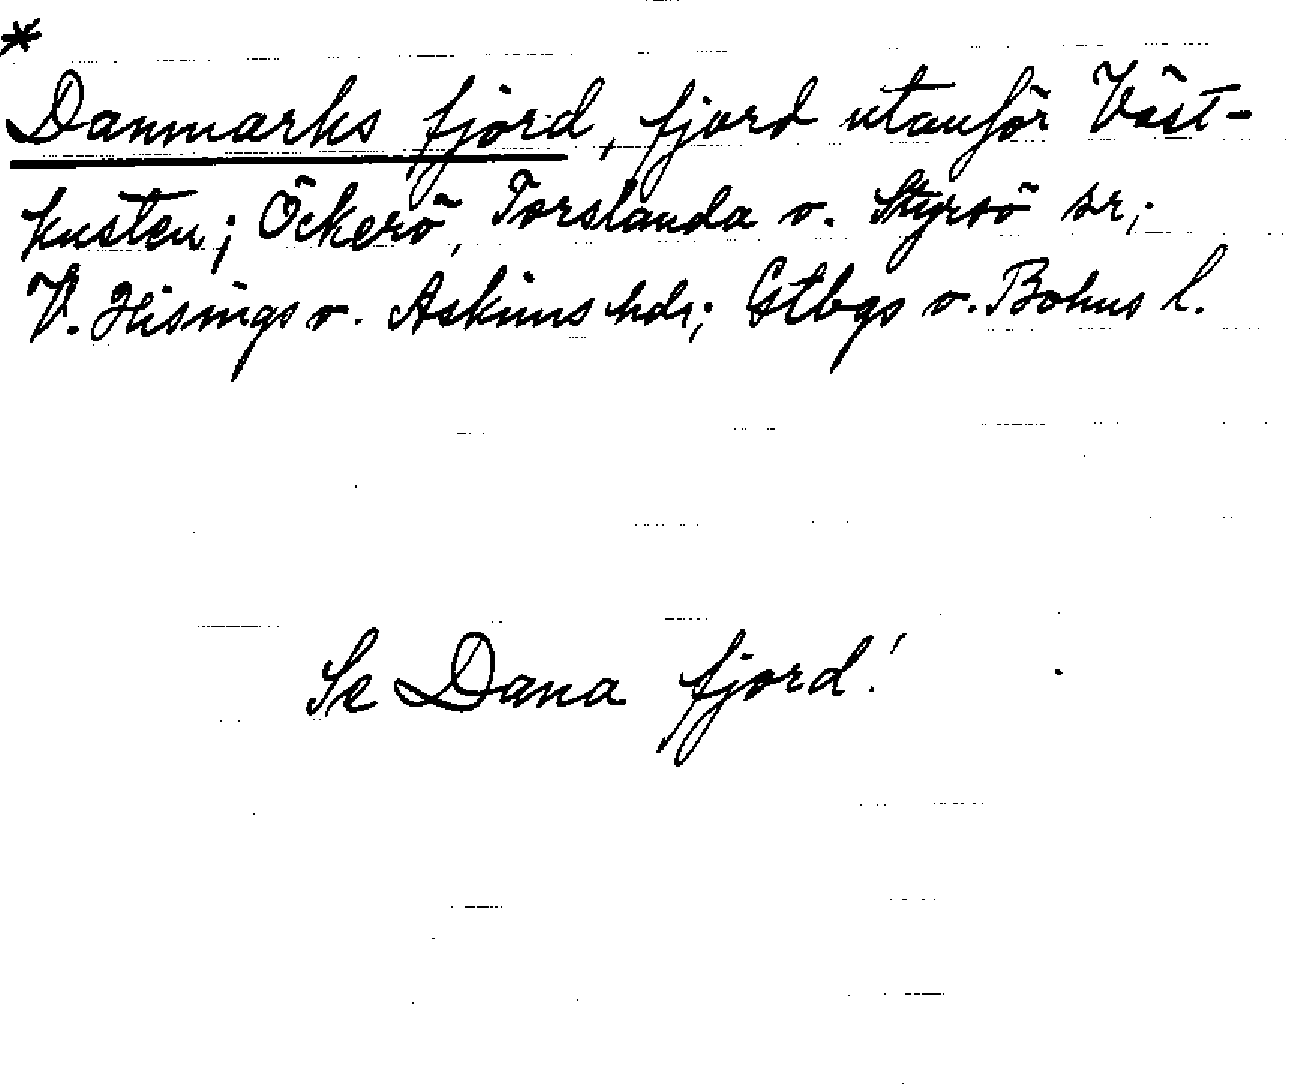 *
Danmarks fjord, fjord utanför Väst-
kusten; Öckerö, Torslanda o. Styrsö snr;
V. Hisings o. Askims hdr; Gtbgs o. Bohus l.
Se Dana fjord!